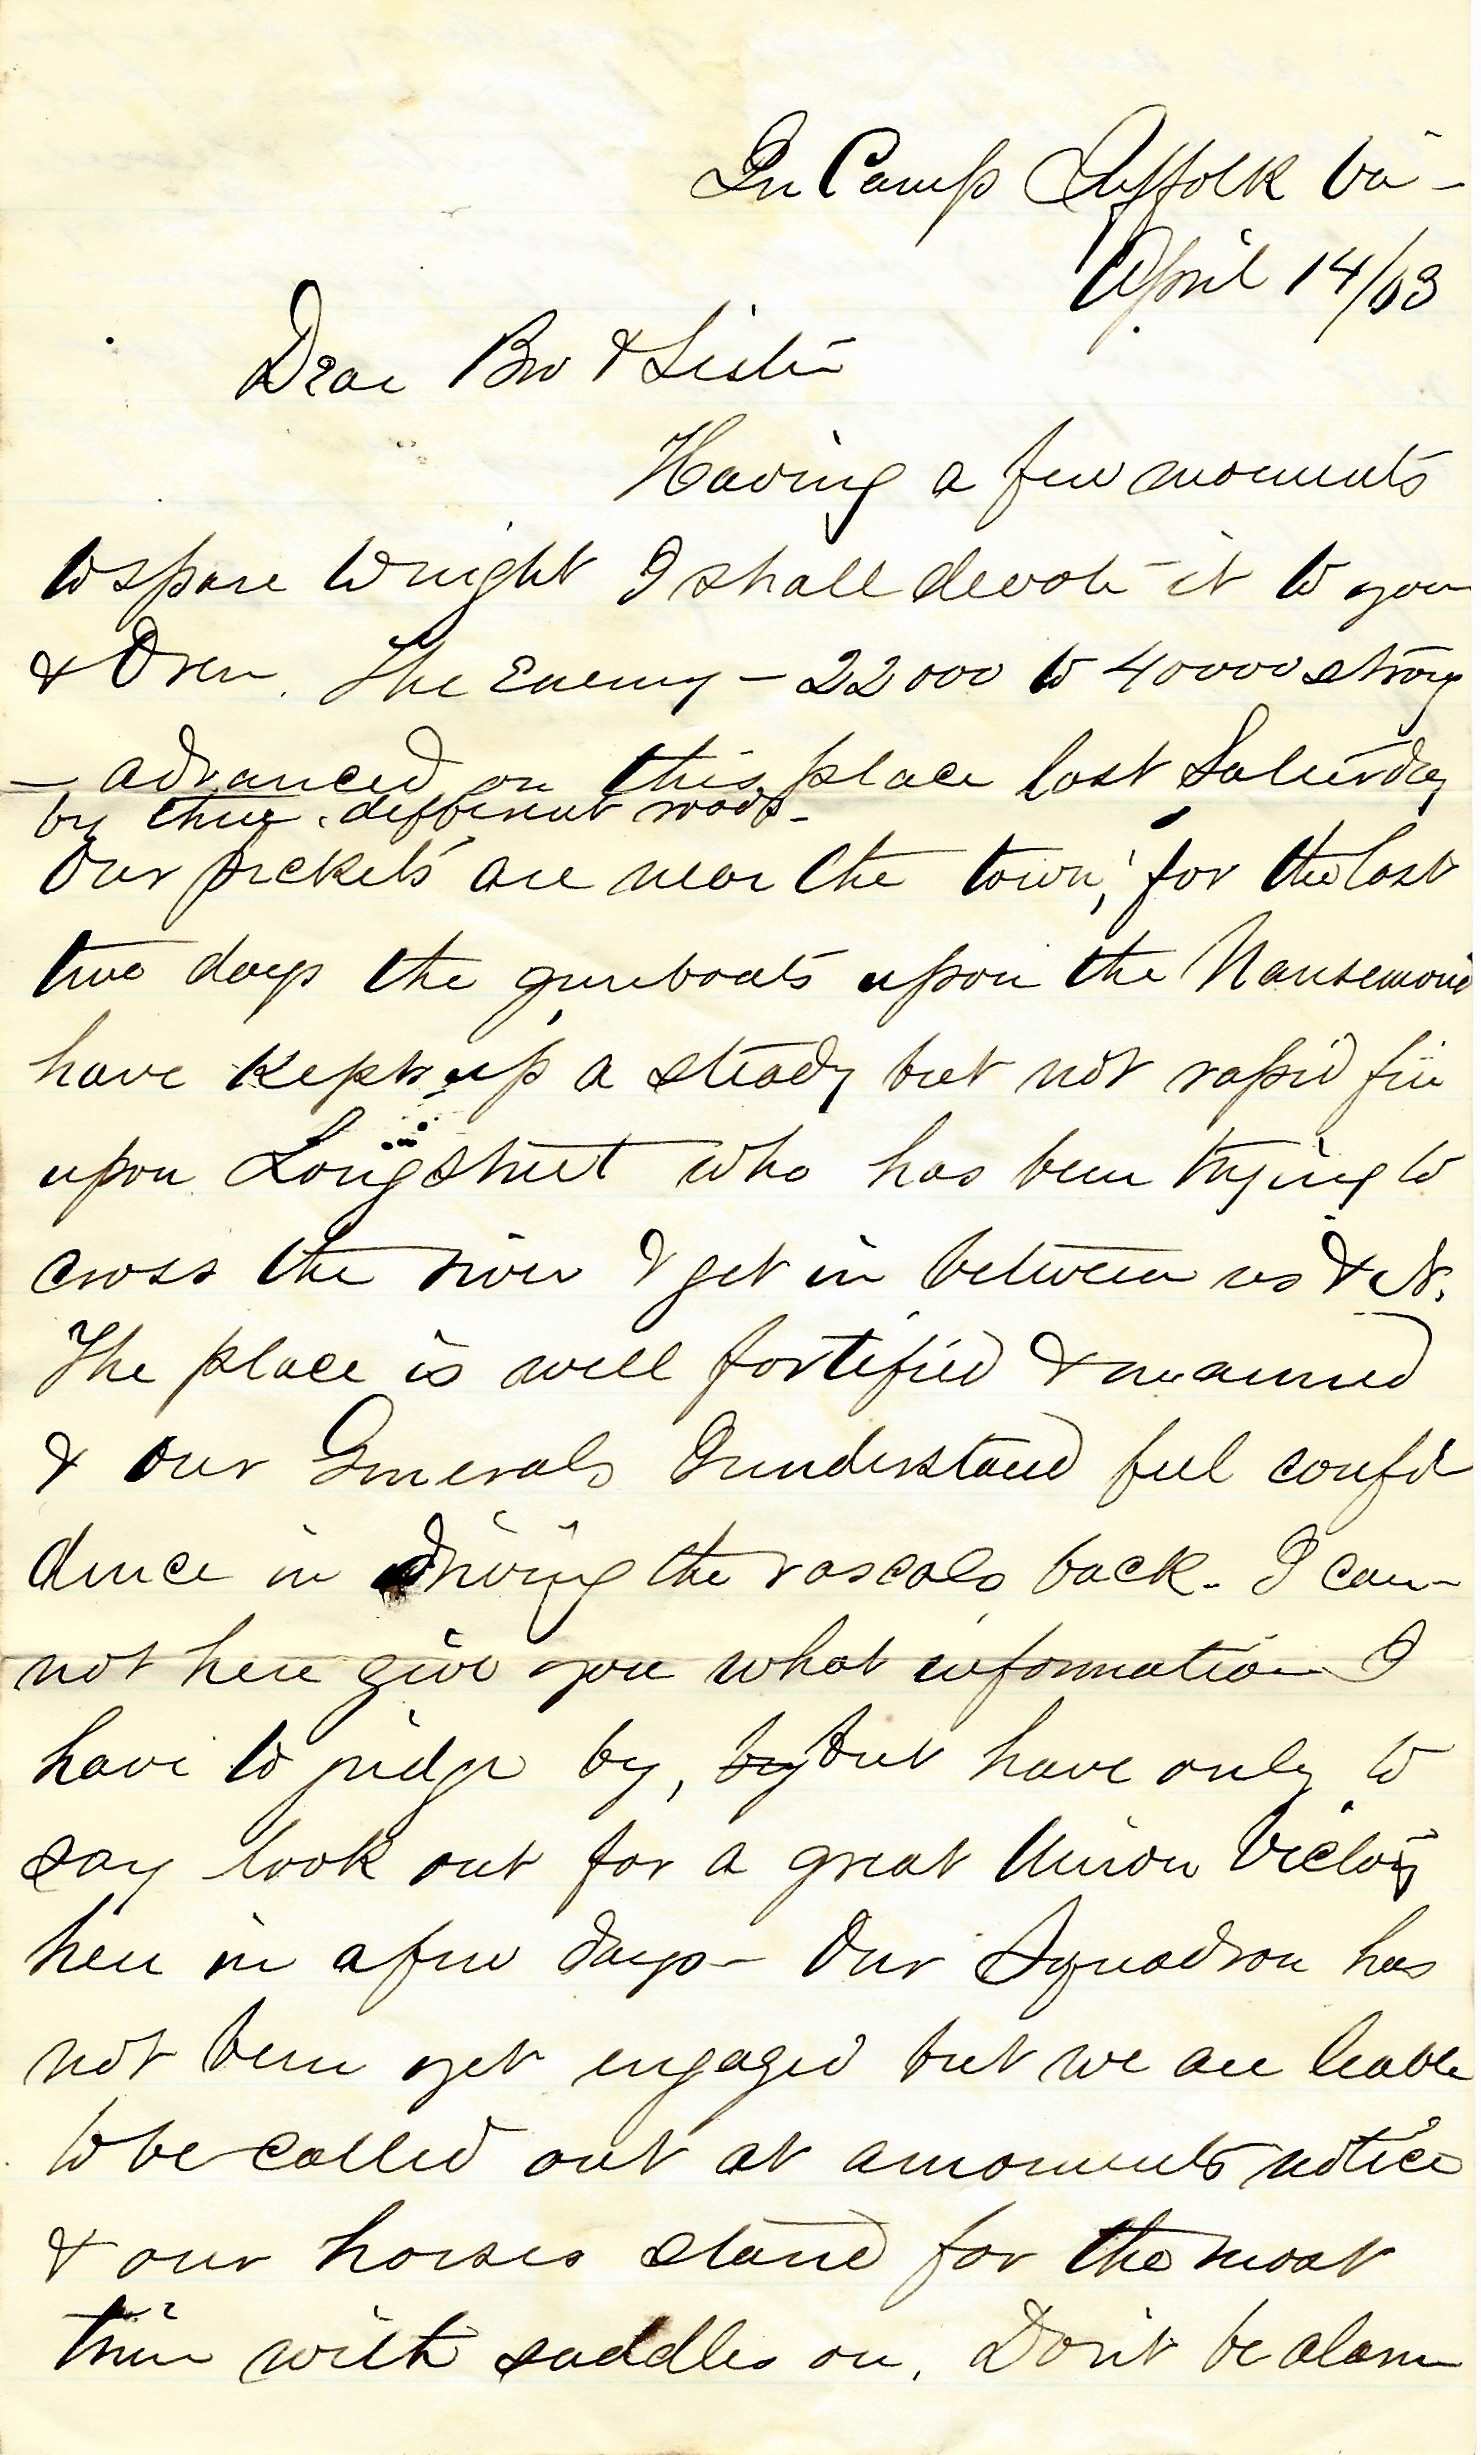 In Camp Suffolk Va -
April 14/63
Dear Bro & Sister
Having a few moments
to spare to night I shall devote it to you
& Oren. The Enemy - 22000 to 40000 strong
- advanced on this place last Saturday
by three different roads -
Our pickets are near the town, for the last
two days the gunboats upon the Nansemond
have kept up a steady but not rapid fire
upon Longstreet who has been trying to
cross the river & get in between us & N.
The place is well fortified & manned
& our Generals I understand feel confi
dence in driving the rascals back - I can-
not here give you what information I
have to judge by, by but have only to
say look out for a great Union Victory
here in a few days - Our Squadron has
not been yet engaged but we are leable
to be called out at a moments notice
& our horses stand for the most
time with saddles on. Don't be alarm